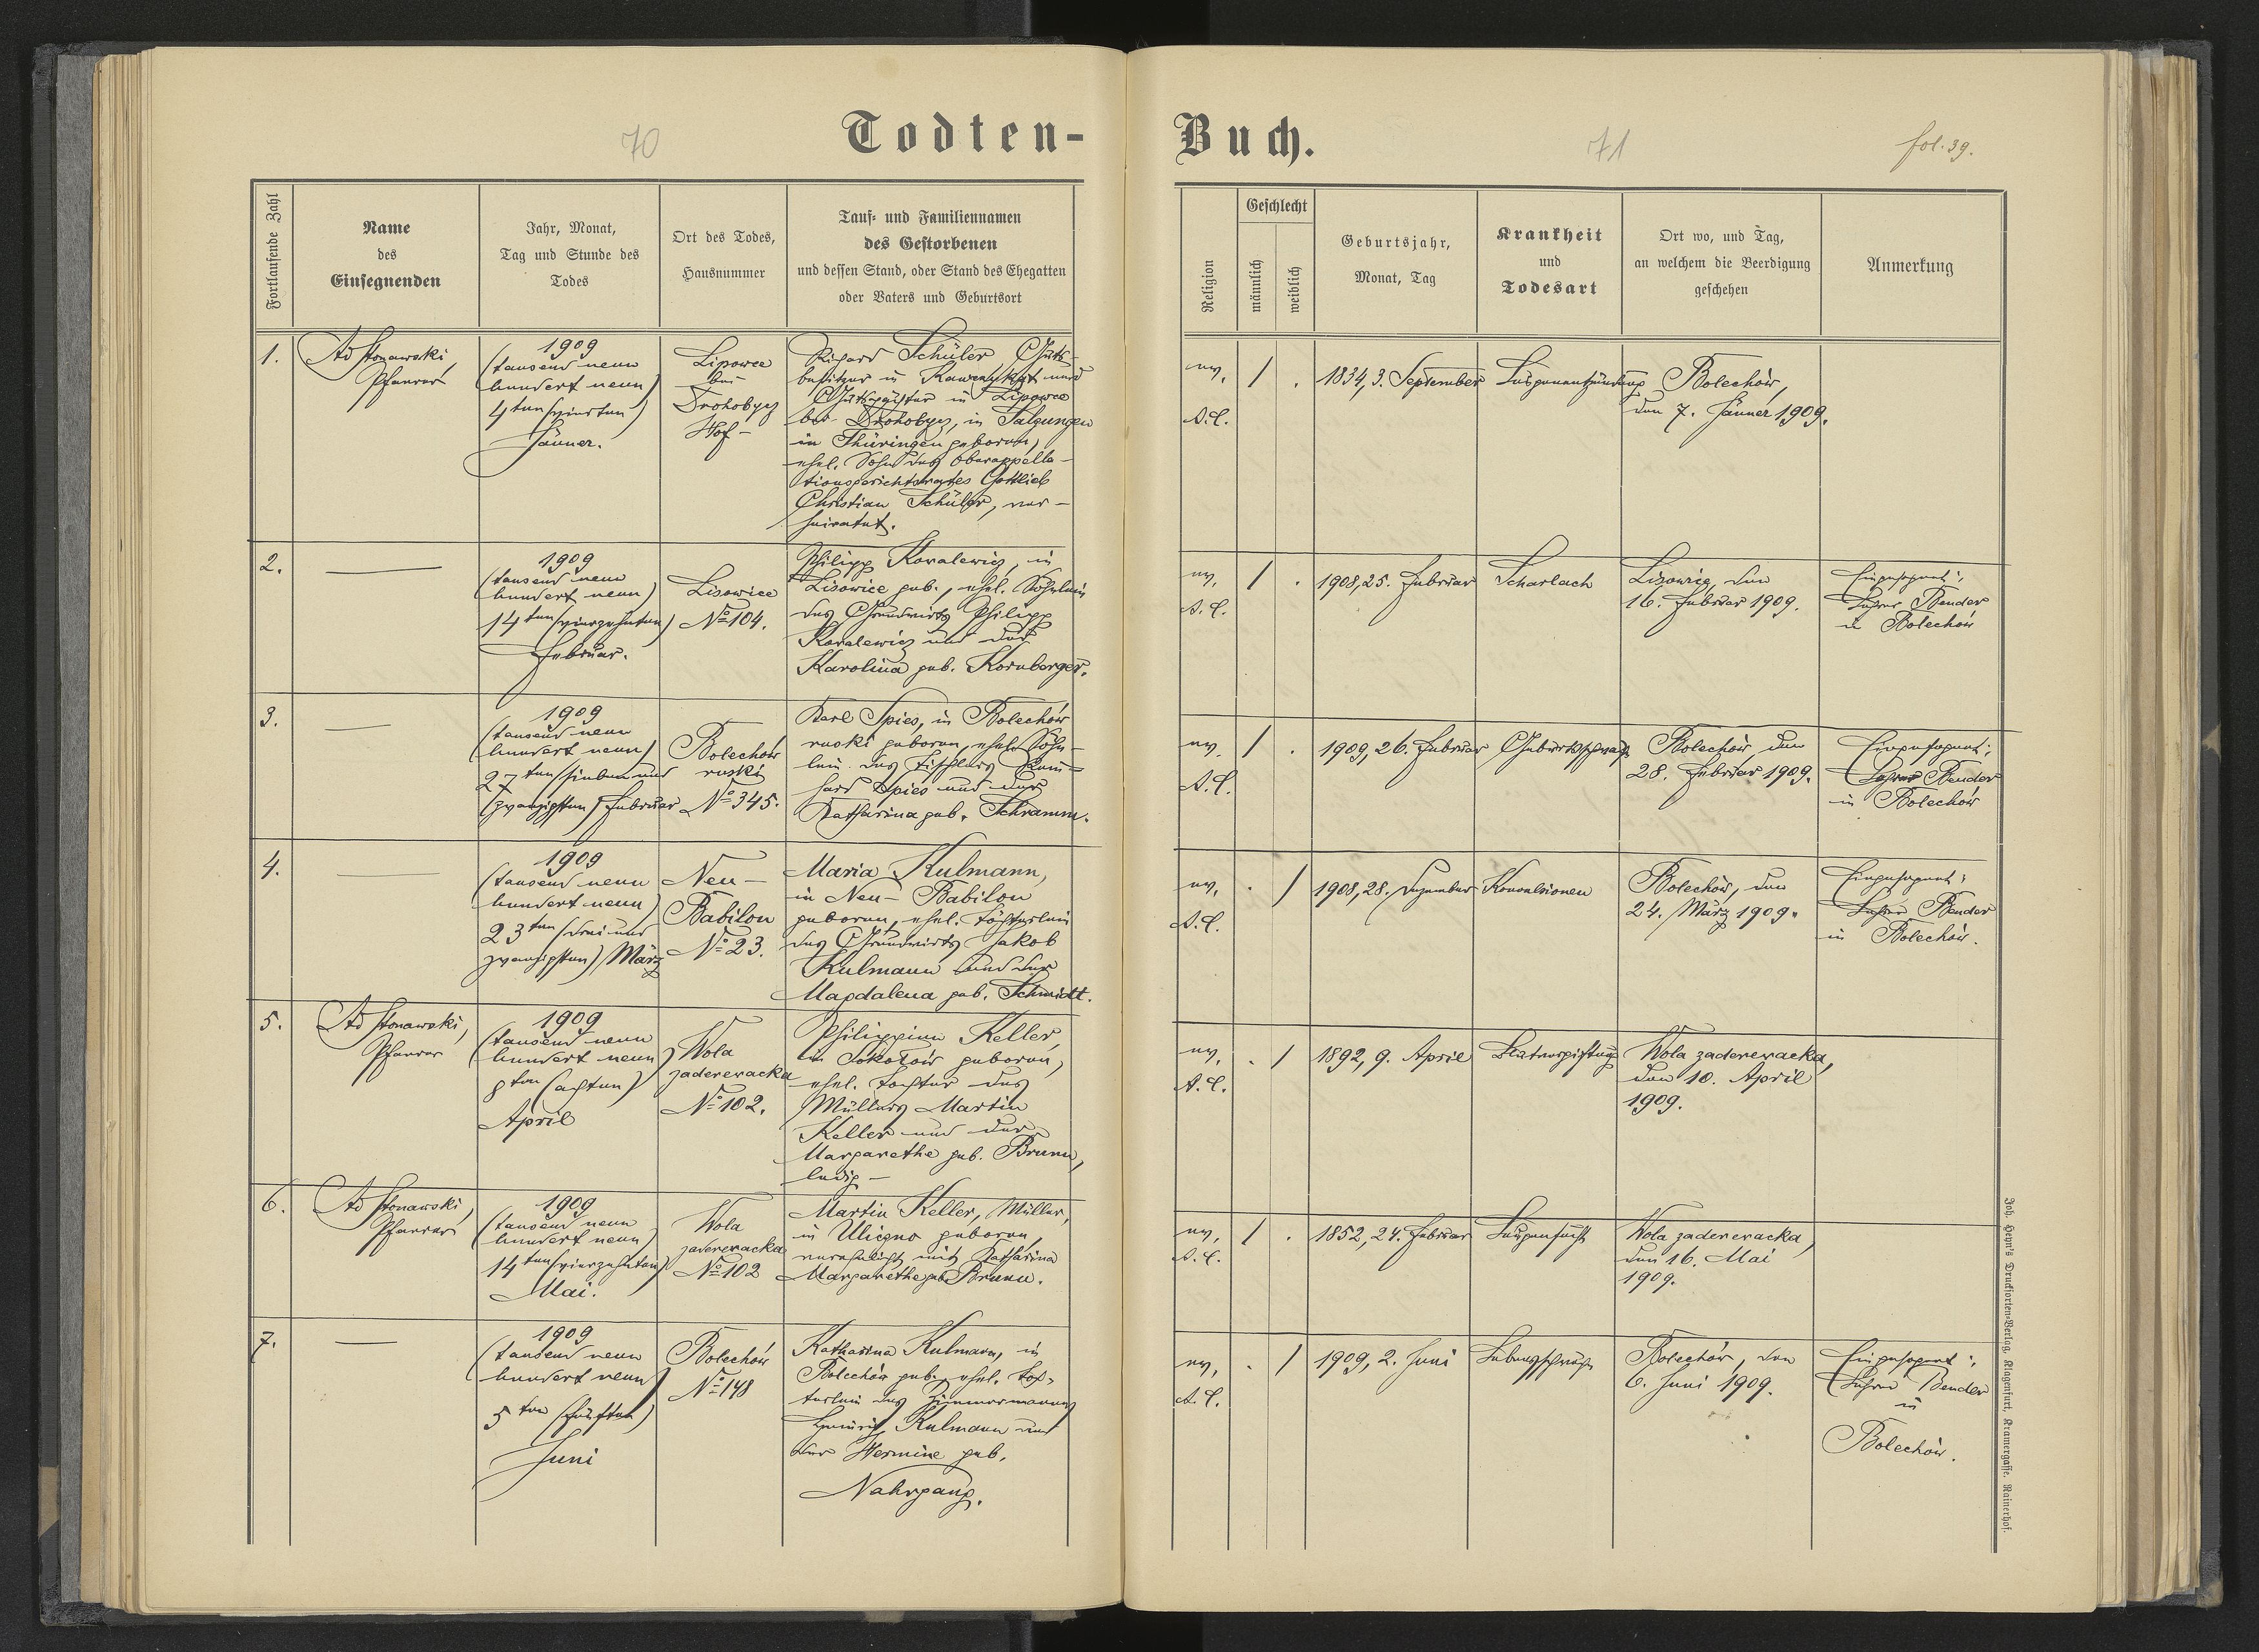 70
Todten-
Fortlaufende Zahl
Name
des
Einsegnenden
Jahr, Monat,
Tag und Stunde des
Todes
Ort des Todes,
Hausnummer
Tauf- und Familiennamen
des Gestorbenen
und dessen Stand, oder Stand des Ehegatten
oder Vaters und Geburtsort
1.
Ad Stonawski,
Pfarrer
1909
(tausend neun
hundert neun)
4ten (vierten)
Jänner.
Lipowce
bei
Drohobycz
Hof -
Richard Schüler, Guts-
besitzer in und
Gutspächter in Lipowce
bei Drohobycz, in Salzungen
in Thüringen geboren,
ehel. Sohn des Oberappella-
tionsgerichtsrates Gottlieb
Christian Schüler, ver-
heiratet.
2.
1909
(tausend neun
hundert neun)
14ten (vierzehnten)
Februar.
Lisowice
No 104.
Philipp Kovalewicz, in
Lisowice geb., ehel. Söhnlein
des Grundwirts Philipp
Kovalewicz und der
Karolina geb. Kornberger.
3.
1909
(tausend neun
hundert neun)
27ten (sieben und
zwanzigsten) Februar
Bolechów
ruski
No 345.
Karl Spies, in Bolechów
ruski geboren, ehel. Söhn-
lein des Tischlers Rein-
hard Spies und der
Katharina geb. Schramm.
4.
1909
(tausend neun
hundert neun)
23ten (drei und
zwanzigsten) März
Neu-
Babilon
No 23.
Maria Kulmann,
in Neu-Babilon
geboren, ehel. Töchterlein
des Grundwirts Jakob
Kulmann und der
Magdalena geb. Schmidt.
5.
Ad Stonawski,
Pfarrer
1909
(tausend neun
hundert neun)
8ten (achten)
April
Wola
zaderewacka
No 102.
Philippine Keller,
in Sokołów geboren,
ehel. Tochter des
Müllers Martin
Keller und der
Margarethe geb. Brunn,
ledig -
6.
Ad Stonawski,
Pfarrer
1909
(tausend neun
hundert neun)
14ten (vierzehnten)
Mai.
Wola
zaderewacka
No 102
Martin Keller, Müller,
in Uliczno geboren,
verehelicht mit Katharina
Margarethe geb. Brunn.
7.
1909
(tausend neun
hundert neun)
5ten (fünften)
Juni
Bolechów
No 148
Katharina Kulmann, in
Bolechów geb., ehel. Töch-
terlein des Zimmermanns
Heinrich Kulmann und
der Hermine geb.
Nahrgang.
Buch.
71
fol. 39.
Religion
Geschlecht
männlich
weiblich
Geburtsjahr,
Monat, Tag
Krankheit
und
Todesart
Ort wo, und Tag,
an welchem die Beerdigung
geschehen
Anmerkung
ev.
A.C.
/ .
1834, 3. September
Lungenentzündung
Bolechów,
den 7. Jänner 1909.
ev.
A.C.
/ .
1908, 25. Februar
Scharlach
Lisowice, den
16. Februar 1909.
Eingesegnet:
Lehrer Bender
in Bolechów
ev.
A.C.
/ .
1909, 26. Februar
Bolechów den
28. Februar 1909.
Eingesegnet:
Lehrer Bender
in Bolechów
ev.
A.C.
. /
1908, 28. Dezember
Konvulsionen
Bolechów, den
24. März 1909.
Eingesegnet:
Lehrer Bender
in Bolechów.
ev.
A.C.
. /
1892, 9. April
Blutvergiftung
Wola zaderewacka,
den 10. April
1909.
ev.
A.C.
/ .
1852, 24. Februar
Lungensucht
Wola zaderewacka,
den 16. Mai
1909.
ev.
A.C.
. /
1909, 2. Juni
Lebensschwäche
Bolechów, den
6. Juni 1909.
Eingesegnet:
Lehrer Bender
in
Bolechów.
Joh. Heyn's Drucksorten-Verlag, Klagenfurt, Kramergasse, Rainerhof.